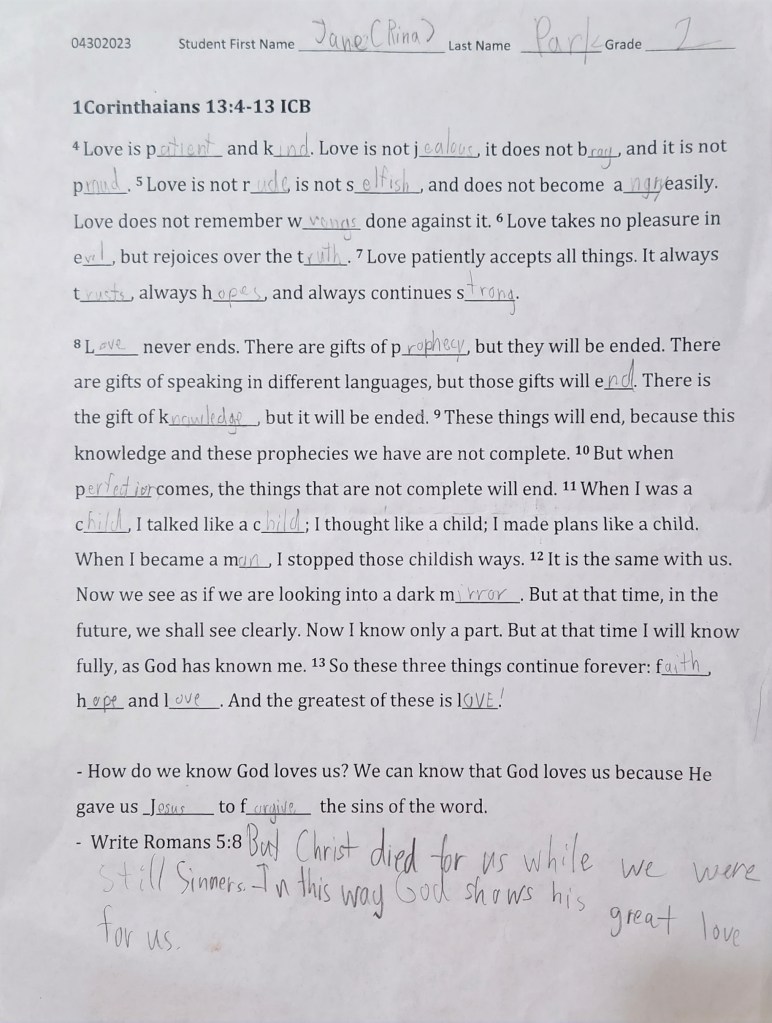 04302023 Student First Name Jane (Rina) Last Name Park Grade 2
1Corinthaians 13:4-13 ICB
4 Love is patient and kind. Love is not jealous, it does not brag, and it is not
proud. 5 Love is not rude, is not selfish, and does not become angry easily.
Love does not remember wrongs done against it. 6 Love takes no pleasure in
evil, but rejoices over the truth. 7 Love patiently accepts all things. It always
trusts, always hopes, and always continues strong.
8 Love never ends. There are gifts of prophecy, but they will be ended. There
are gifts of speaking in different languages, but those gifts will end. There is
the gift of knowledge, but it will be ended. 9 These things will end, because this
knowledge and these prophecies we have are not complete. 10 But when
perfection comes, the things that are not complete will end. 11 When I was a
child, I talked like a child; I thought like a child; I made plans like a child.
When I became a man, I stopped those childish ways. 12 It is the same with us.
Now we see as if we are looking into a dark mirror. But at that time, in the
future, we shall see clearly. Now I know only a part. But at that time I will know
fully, as God has known me. 13 So these three things continue forever: faith,
hope and love. And the greatest of these is lOVE!
- How do we know God loves us? We can know that God loves us because He
gave us Jesus to forgive the sins of the word.
- Write Romans 5:8 But Christ died for us while we were
still Sinners. In this way God shows his great love
for us.